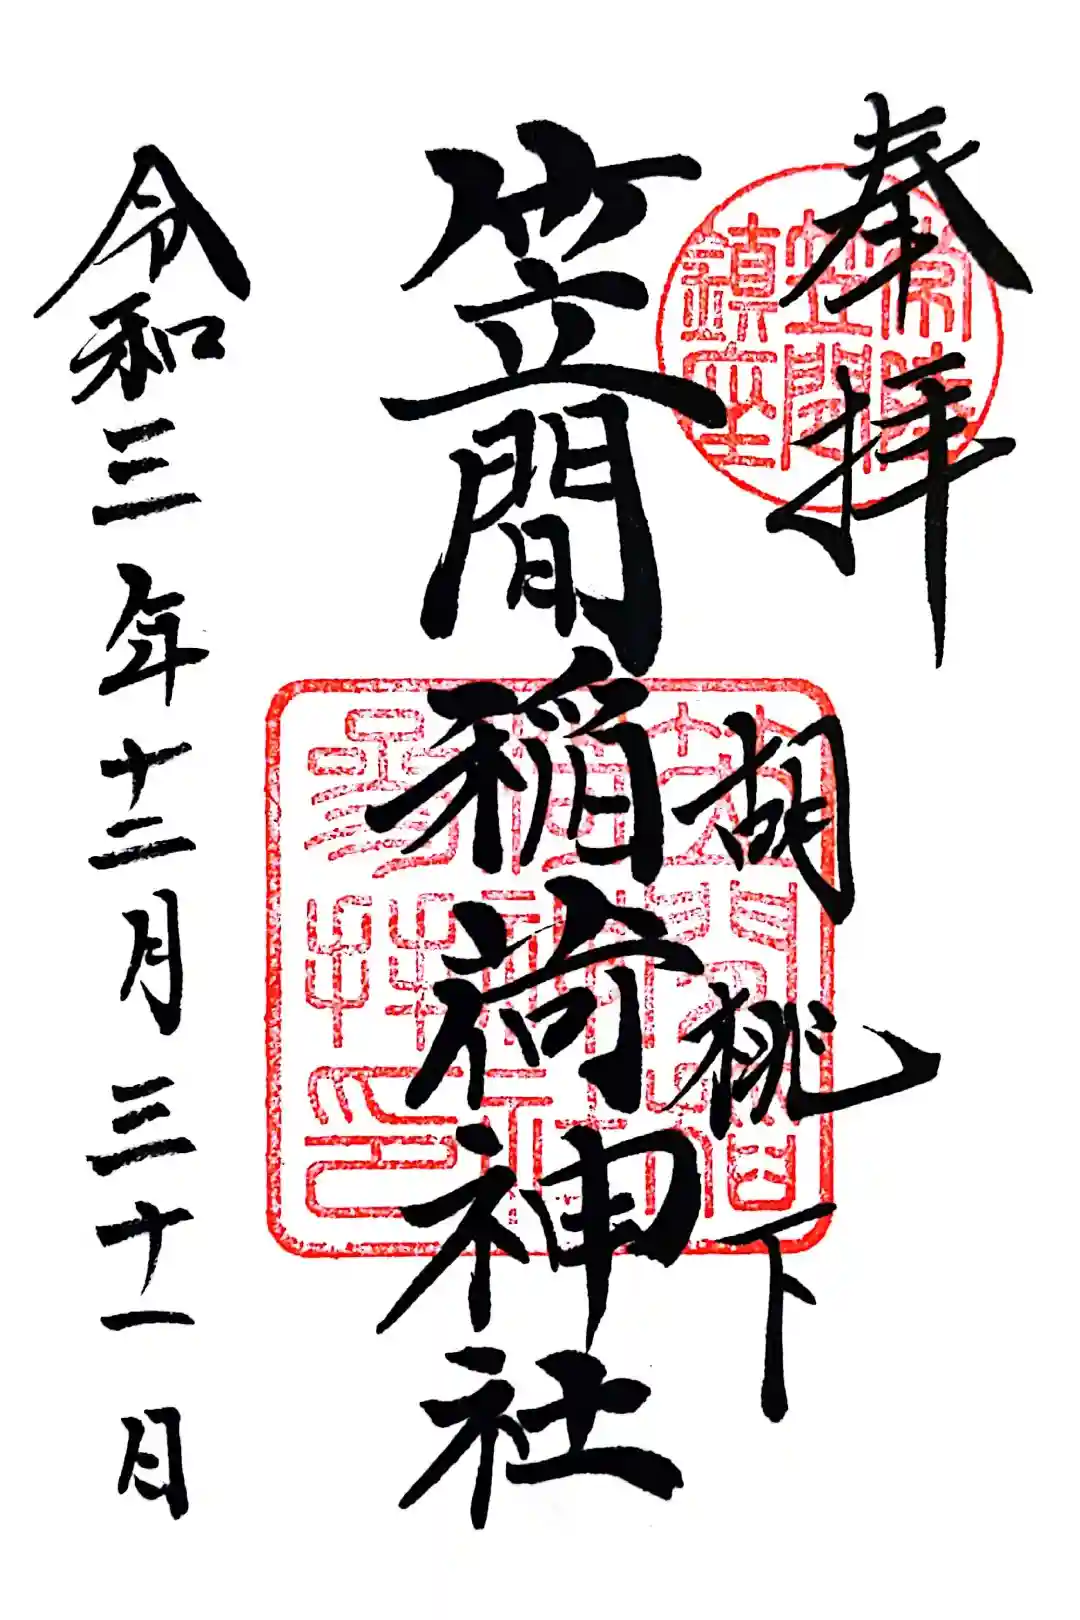 奉拝
常陸
笠間
鎮座
胡桃下
笠間稲荷神社
笠間稲
荷神社
参拝印
令和三年十二月三十一日